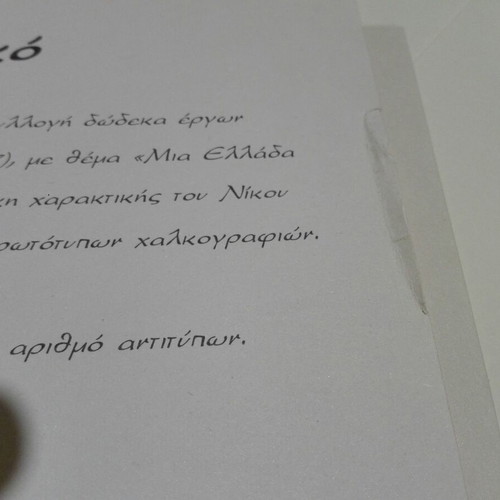 κό
υλλογή δώδεκα έργων
), με θέμα «Μια Ελλάδα
κη χαρακτικής του Νίκου
ρωτότυπων χαλκογραφιών.
αριθμό αντιτύπων.